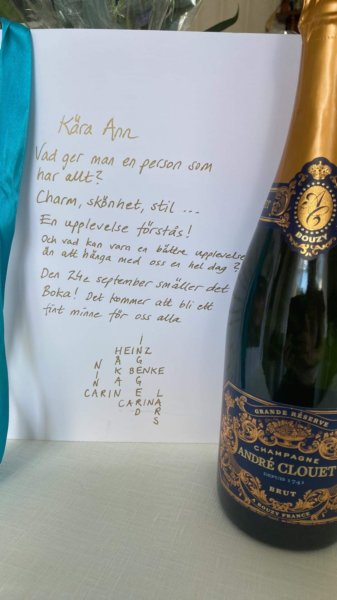 Kära Ann
Vad ger man en person som
har allt?
Charm, skönhet, stil ...
En upplevelse förstås!
Och vad kan vara en bättre upplevelse
än att hänga med oss en hel dag?
Den 24e september smäller det
Boka! Det kommer att bli ett
fint minne för oss alla
I
HEINZ
N Å G
I K BENKE
N A G
CARIN E L
CARINA
D R
S
BOUZY
GRANDE RÉSERVE
CHAMPAGNE
ANDRÉ CLOUET
DEPUIS 1741
BRUT
A BOUZY FRANCE